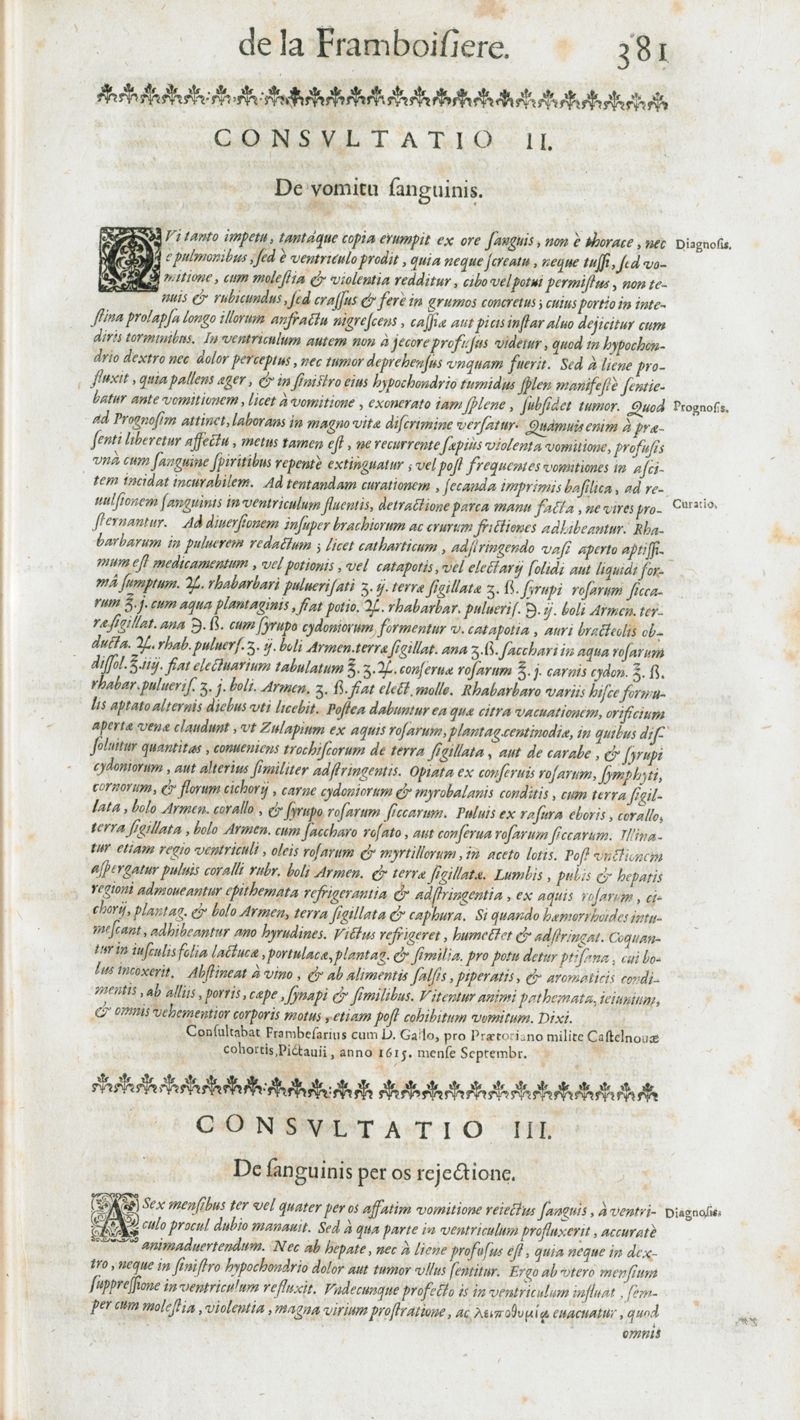 de la Framboiſiere. 381
CONSVLTATIO II.
De vomitu ſanguinis.
QVi tanto impetu, tantáque copia erumpit ex ore ſanguis, non è thorace, nec Diagnoſis.
e pulmonibus, ſed è ventriculo prodit, quia neque ſcreatu, neque tuſſi, ſed vo-
mitione, cum moleſtia & violentia redditur, cibo vel potui permiſtus, non te-
nuis & rubicundus, ſed craſſus & ferè in grumos concretus; cuius portio in inte-
ſtina prolapſa longo illorum anfractu nigreſcens, caſſiæ aut picis inſtar aluo dejicitur cum
diris torminibus. In ventriculum autem non à jecore profuſus videtur, quod in hypochon-
drio dextro nec dolor perceptus, nec tumor deprehenſus vnquam fuerit. Sed à liene pro-
fluxit, quia pallens æger, & in ſiniſtro eius hypochondrio tumidus ſplen manifeſtè ſentie-
batur ante vomitionem, licet à vomitione, exonerato iam ſplene, ſubſidet tumor. Quod Prognoſis.
ad Prognoſim attinet, laborans in magno vitæ diſcrimine verſatur. Quamuis enim à præ-
ſenti liberetur affectu, metus tamen eſt, ne recurrente ſæpiùs violenta vomitione, profuſis
vnà cum ſanguine ſpiritibus repentè extinguatur, vel poſt frequentes vomitiones in aſci-
tem incidat incurabilem. Ad tentandam curationem, ſecanda imprimis baſilica, ad re-
uulſionem ſanguinis in ventriculum fluentis, detractione parca manu facta, ne vires pro- Curatio.
ſternantur. Ad diuerſionem inſuper brachiorum ac crurum frictiones adhibeantur. Rha-
barbarum in puluerem redactum; licet catharticum, adſtringendo vaſi aperto aptiſſi-
mum eſt medicamentum, vel potionis, vel catapotis, vel electarij ſolidi aut liquidi for-
mâ ſumptum. ℞. rhabarbari pulueriſati ʒ. ij. terræ ſigillatæ ʒ. ß. ſyrupi roſarum ſicca-
rum ℥. j. cum aqua plantaginis, fiat potio. ℞. rhabarbar. pulueriſ. ℈. ij. boli Armen. ter-
ræ ſigillat. ana ℈. ß. cum ſyrupo cydoniorum formentur v. catapotia, auri bracteolis ob-
ducta. ℞. rhab. puluerſ. ʒ. ij. boli Armen. terræ ſigillat. ana ʒ. ß. ſacchari in aqua roſarum
diſſol. ℥. iiij. fiat electuarium tabulatum ℥. ʒ. ℞. conſeruæ roſarum ℥. j. carnis cydon. ℥. ß.
rhabar. pulueriſ. ʒ. j. boli. Armen. ʒ. ß. fiat elect. molle. Rhabarbaro variis hiſce formu-
lis aptato alternis diebus vti licebit. Poſtea dabuntur ea quæ citra vacuationem, orificium
apertæ venæ claudunt, vt Zulapium ex aquis roſarum, plantag. centinodiæ, in quibus diſ-
ſoluitur quantitas, conueniens trochiſcorum de terra ſigillata, aut de carabe, & ſyrupi
cydoniorum, aut alterius ſimiliter adſtringentis. Opiata ex conſeruis roſarum, ſymphyti,
cornorum, & florum cichorij, carne cydoniorum & myrobalanis conditis, cum terra ſigil-
lata, bolo Armen. corallo, & ſyrupo roſarum ſiccarum. Puluis ex raſura eboris, corallo,
terra ſigillata, bolo Armen. cum ſaccharo roſato, aut conſerua roſarum ſiccarum. Illina-
tur etiam regio ventriculi, oleis roſarum & myrtillorum, in aceto lotis. Poſt vnctionem
aſpergatur puluis coralli rubr. boli Armen. & terræ ſigillatæ. Lumbis, pubis & hepatis
regioni admoueantur epithemata refrigerantia & adſtringentia, ex aquis roſarum, ci-
chorij, plantag. & bolo Armen, terra ſigillata & caphura. Si quando hæmorrhoides intu-
meſcant, adhibeantur ano hyrudines. Victus refrigeret, humectet & adſtringat. Coquan-
tur in iuſculis folia lactucæ, portulacæ, plantag. & ſimilia. pro potu detur ptiſana, cui bo-
lus incoxerit. Abſtineat à vino, & ab alimentis ſalſis, piperatis, & aromaticis condi-
mentis, ab alliis, porris, cæpe, ſynapi & ſimilibus. Vitentur animi pathemata, ieiunium,
& omnis vehementior corporis motus, etiam poſt cohibitum vomitum. Dixi.
Conſultabat Frambeſarius cum D. Gallo, pro Prætoriano milite Caſtelnouæ
cohortis, Pictauii, anno 1615. menſe Septembr.
CONSVLTATIO III.
De ſanguinis per os rejectione.
A Sex menſibus ter vel quater per os affatim vomitione reiectus ſanguis, à ventri- Diagnoſis.
culo procul dubio manauit. Sed à qua parte in ventriculum profluxerit, accuratè
animaduertendum. Nec ab hepate, nec à liene profuſus eſt, quia neque in dex-
tro, neque in ſiniſtro hypochondrio dolor aut tumor vllus ſentitur. Ergo ab vtero menſium
ſuppreſſione in ventriculum refluxit. Vndecunque profecto is in ventriculum influat, ſem-
per cum moleſtia, violentia, magna virium proſtratione, ac λειποθυμίᾳ euacuatur, quod
omnis